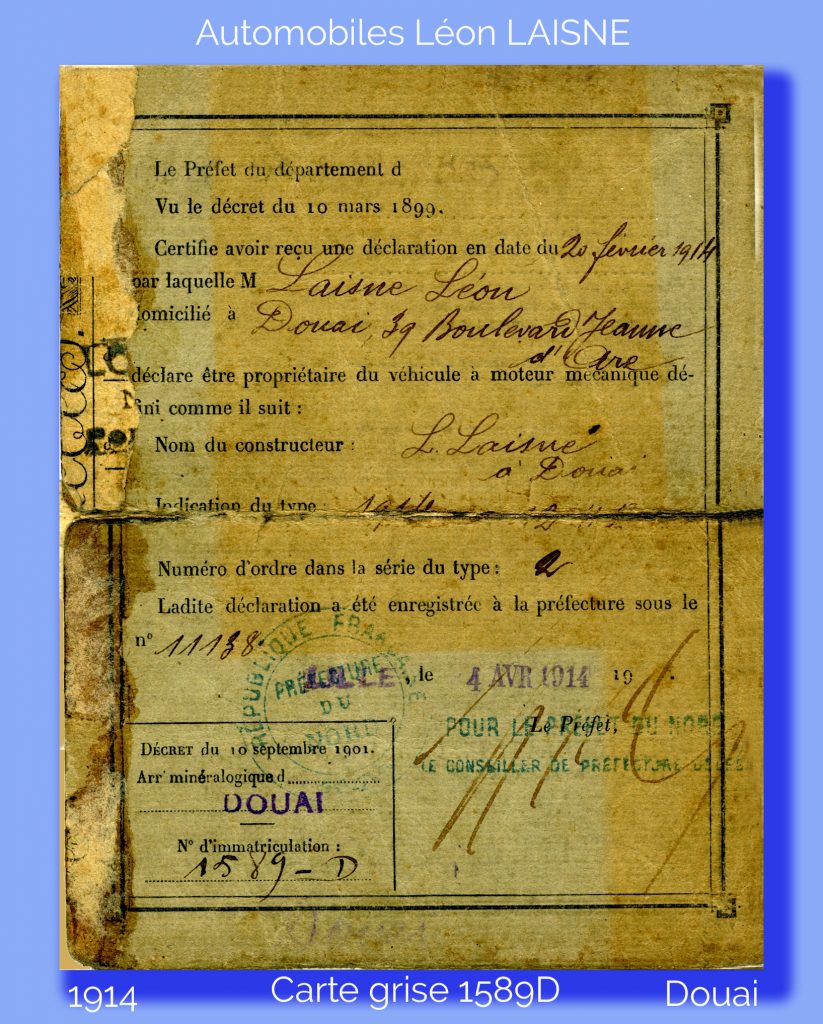 Automobiles Léon LAISNE
Le Préfet du département d
Vu le décret du 10 mars 1899.
Certifie avoir reçu une déclaration en date du 20 février 1914
par laquelle M Laisne Léon
domicilié à Douai, 39 Boulevard Jeanne
d'Arc
déclare être propriétaire du véhicule à moteur mécanique dé-
fini comme il suit :
Nom du constructeur : L. Laisne
à Douai
Indication du type : 1914
Numéro d'ordre dans la série du type : 2
Ladite déclaration a été enregistrée à la préfecture sous le
n° 11138
RÉPUBLIQUE FRANÇAISE
PRÉFECTURE
DU
NORD
LILLE, le 4 AVR 1914 19
Le Préfet,
POUR LE PRÉFET DU NORD
LE CONSEILLER DE PRÉFECTURE
DÉCRET du 10 septembre 1901.
Arrt minéralogique d
DOUAI
N° d'immatriculation :
1589-D
1914
Carte grise 1589D
Douai